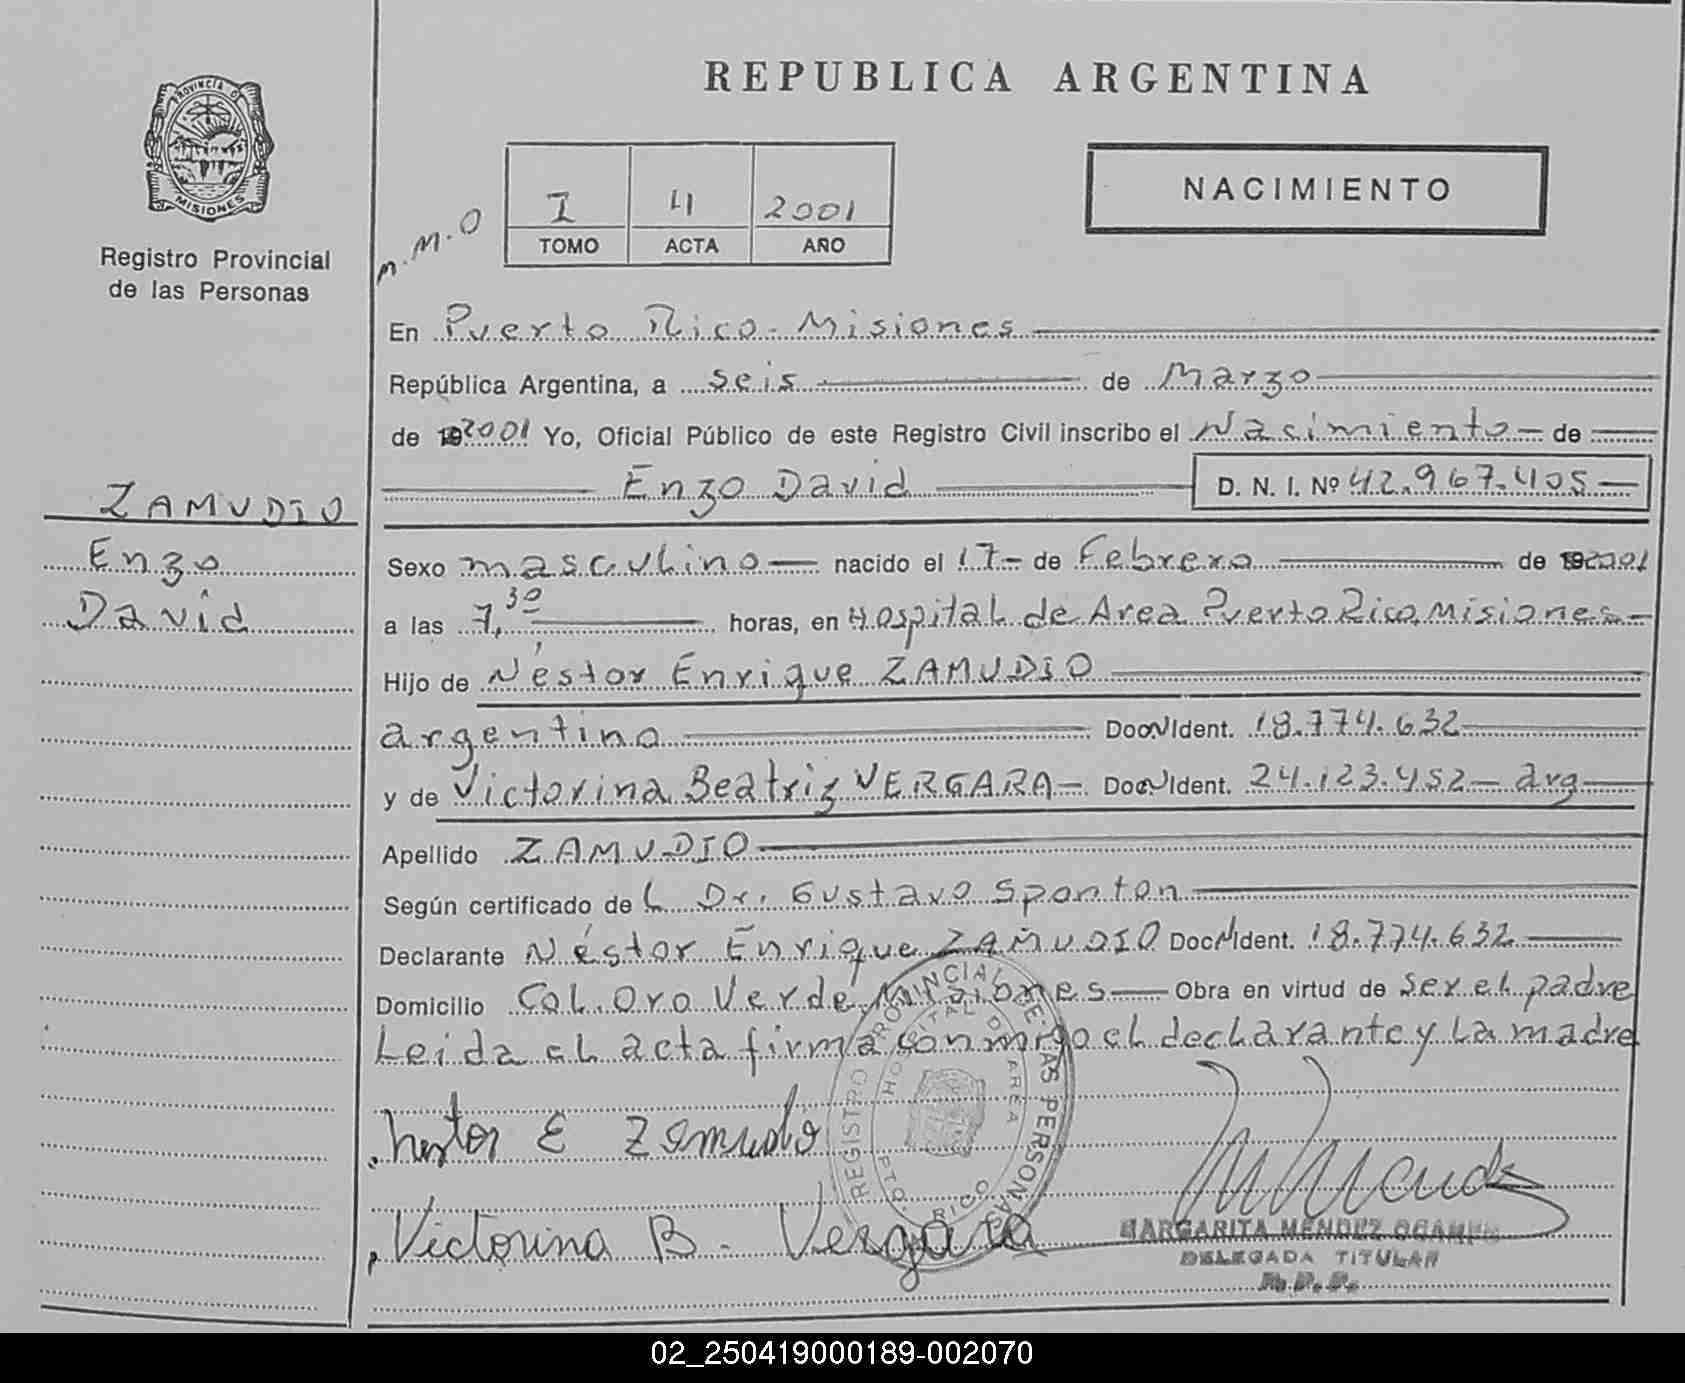 REPUBLICA ARGENTINA
PROVINCIA D
MISIONES
Registro Provincial
de las Personas
M.M.O
I 4 2001
TOMO ACTA AÑO
NACIMIENTO
En Puerto Rico - Misiones
República Argentina, a seis de Marzo
de 2001 Yo, Oficial Público de este Registro Civil inscribo el Nacimiento de
Enzo David D. N. I. Nº 42.967.405
ZAMUDIO
Enzo
David
Sexo masculino nacido el 17 de Febrero de 2001
a las 7,30 horas, en Hospital de Area Puerto Rico, Misiones
Hijo de Néstor Enrique ZAMUDIO
argentino Doc. N Ident. 18.774.632
y de Victorina Beatriz VERGARA Doc. N Ident. 24.123.452 - arg
Apellido ZAMUDIO
Según certificado del Dr. Gustavo Sponton
Declarante Néstor Enrique ZAMUDIO Doc N Ident. 18.774.632
Domicilio Col. Oro Verde, Misiones Obra en virtud de ser el padre
Leida el acta firma conmigo el declarante y la madre
REGISTRO PROVINCIAL DE LAS PERSONAS
HOSPITAL DE AREA
PTO. RICO
Nestor E Zamudio
Victorina B. Vergara
MARGARITA MENDEZ OCAMPO
DELEGADA TITULAR
R.P.P.
02_250419000189-002070